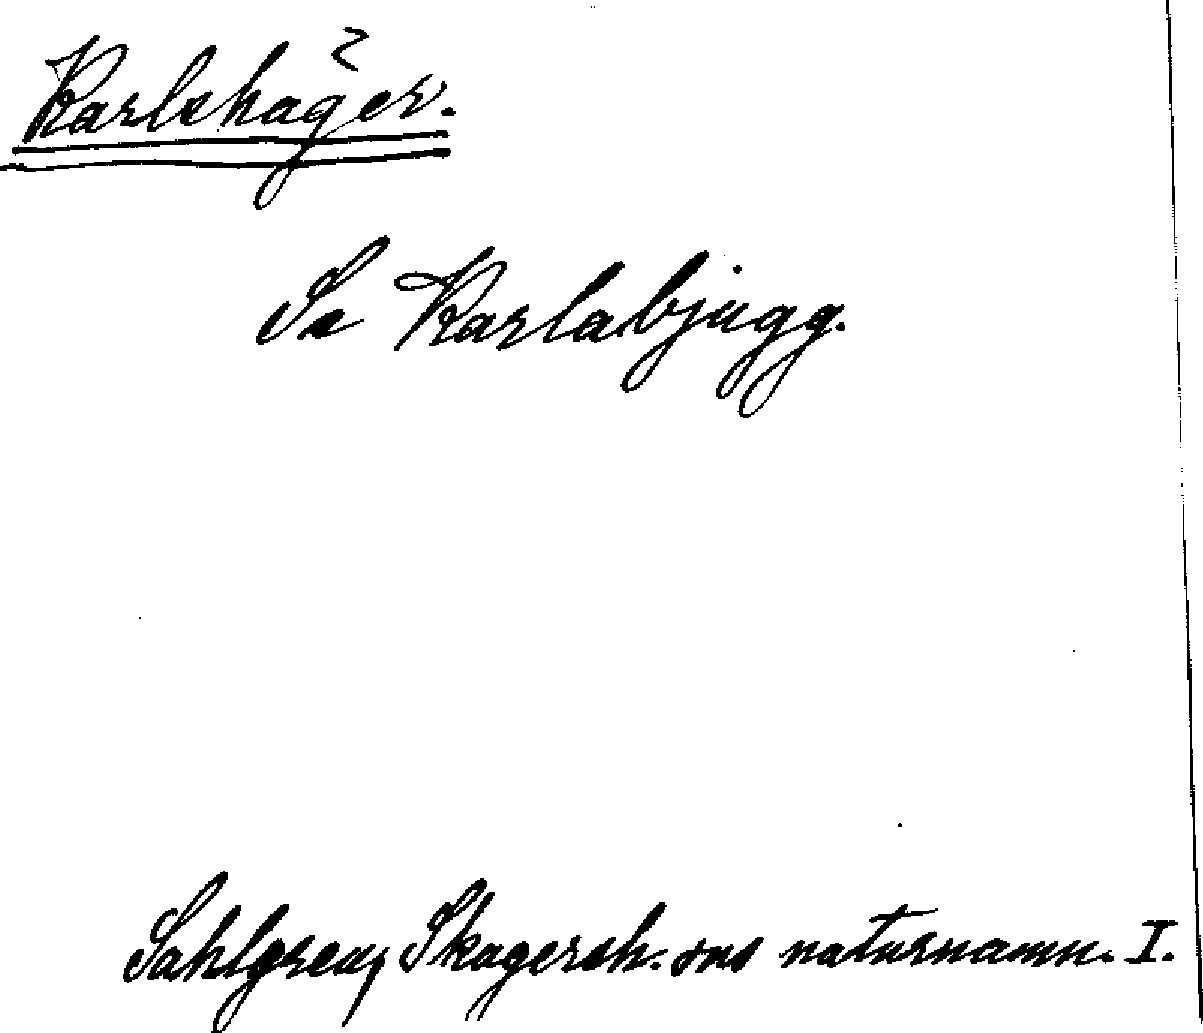 Karlshager.
Se Karlabjugg.
Sahlgren, Skagersh. sns naturnamn. I.